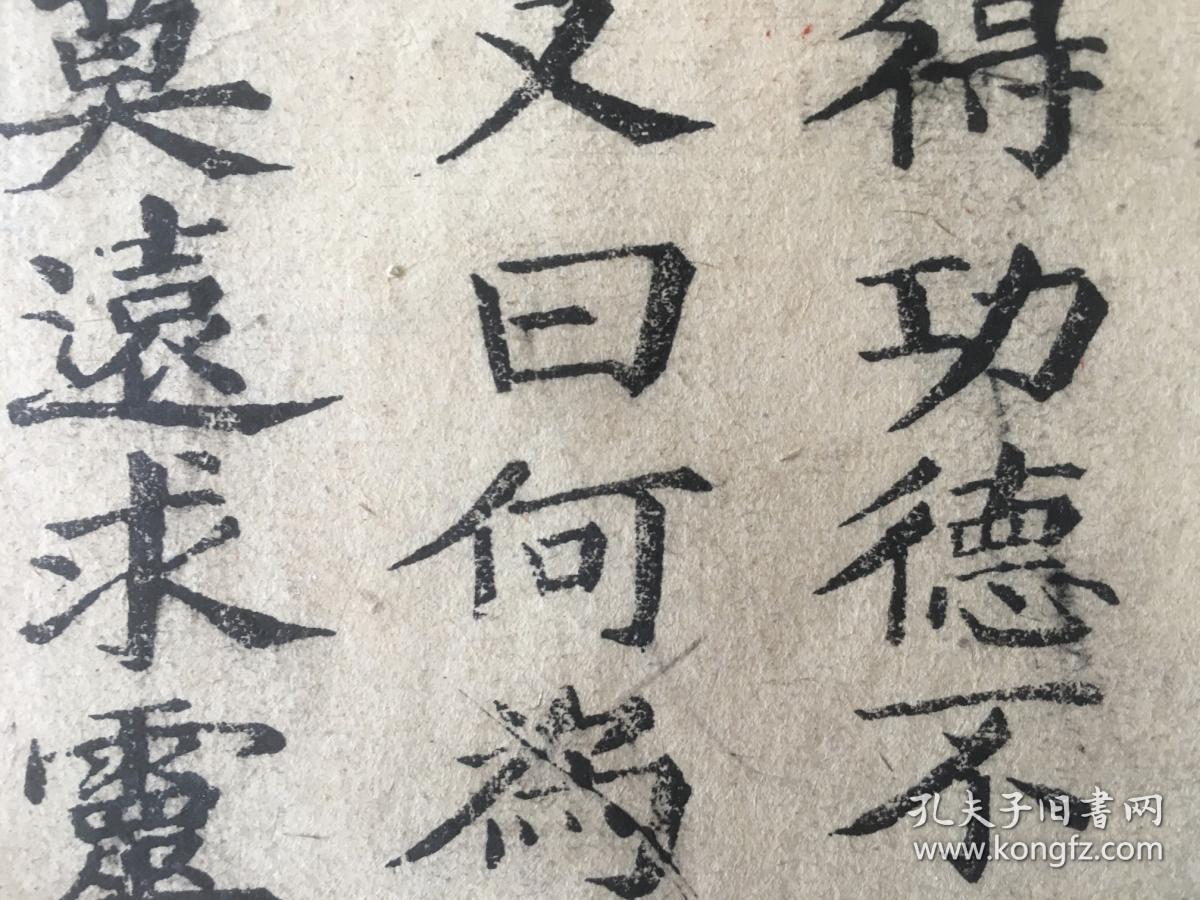 得功德不
又曰何為
莫遠求靈
孔夫子旧書网
www.kongfz.com